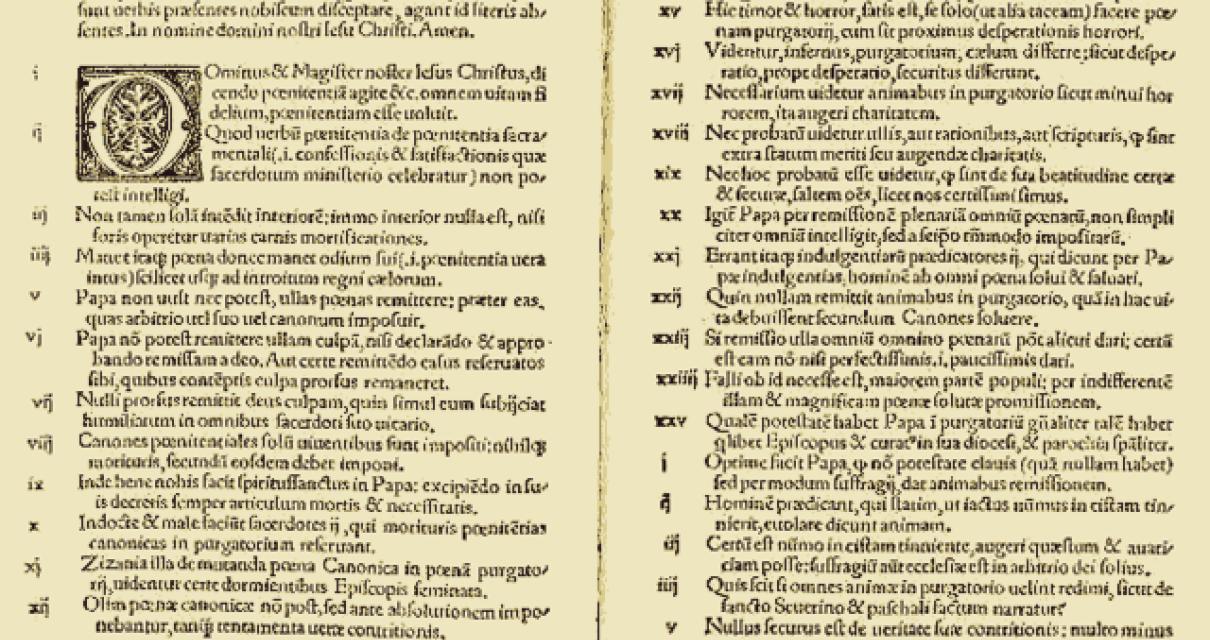 sunt verbis præsentes nobiscum disceptare, agant id literis ab/
sentes. In nomine domini nostri Iesu Christi. Amen.
i DOminus & Magister noster Iesus Christus, di
cendo pœnitentiã agite &c. omnem uitam fi
delium, pœnitentiam esse uoluit.
ij Quod uerbũ pœnitentia de pœnitentia sacra/
mentali (.i. confessionis & satisfactionis quæ
sacerdotum ministerio celebratur) non po/
test intelligi.
iij Non tamen solã intẽdit interiorẽ: immo interior nulla est, nisi
foris operetur uarias carnis mortificationes.
iiij Manet itaqꝫ pœna donec manet odium sui (.i. pœnitentia uera
intus) scilicet usqꝫ ad introitum regni cælorum.
v Papa non uult nec potest, ullas pœnas remittere: præter eas,
quas arbitrio uel suo uel canonum imposuit.
vj Papa nõ potest remittere ullam culpã, nisi declarãdo & appro-
bando remissam a deo. Aut certe remittẽdo casus reseruatos
sibi, quibus contẽptis culpa prorsus remaneret.
vij Nulli prorsus remittit deus culpam, quin simul eum subijciat
humiliatum in omnibus sacerdoti suo uicario.
viij Canones pœnitentiales solũ uiuentibus sunt impositi: nihilqꝫ
morituris, secundũ eosdem debet imponi.
ix Inde bene nobis facit spiritussanctus in Papa: excipiẽdo in su/
is decretis semper articulum mortis & necessitatis.
x Indocte & male faciũt sacerdotes ij, qui morituris pœnitẽtias
canonicas in purgatorium reseruant.
xj Zizania illa de mutanda pœna Canonica in pœnã purgato/
rij, uidentur certe dormientibus Episcopis seminata.
xij Olim pœnæ canonicæ nõ post, sed ante absolutionem impo/
nebantur, tanq̃ tentamenta ueræ contritionis.
xv Hic timor & horror, satis est, se solo (ut alia taceam) facere pœ/
nam purgatorij, cum sit proximus desperationis horrori.
xvj Videntur, infernus, purgatorium, cælum differre: sicut despe/
ratio, prope desperatio, securitas differunt.
xvij Necessarium uidetur animabus in purgatorio sicut minui hor
rorem, ita augeri charitatem.
xviij Nec probatũ uidetur ullis, aut rationibus, aut scripturis, ꝙ sint
extra statum meriti seu augendæ charitatis.
xix Nec hoc probatũ esse uidetur, ꝙ sint de sua beatitudine certæ
& securæ, saltem oẽs, licet nos certissimi simus.
xx Igit̃ Papa per remissionẽ plenariã omniũ pœnarũ, non simpli
citer omniũ intelligit, sed a seipso tm̃modo impositarũ.
xxj Errant itaqꝫ indulgentiarũ prædicatores ij, qui dicunt per Pa/
pæ indulgentias, hominẽ ab omni pœna solui & saluari.
xxij Quin nullam remittit animabus in purgatorio, quã in hac ui/
ta debuissent secundum Canones soluere.
xxiij Si remissio ulla omniũ omnino pœnarũ põt alicui dari: certũ
est eam nõ nisi perfectissimis, .i. paucissimis dari.
xxiiij Falli ob id necesse est, maiorem partẽ populi: per indifferentẽ
illam & magnificam pœnæ solutæ promissionem.
xxv Qualẽ potestatẽ habet Papa ĩ purgatoriũ gñaliter talẽ habet
q̃libet Episcopus & curat᷒ in sua diocesi, & parochia spãliter.
i Optime facit Papa, ꝙ nõ potestate clauis (quã nullam habet)
sed per modum suffragij, dat animabus remissionem.
ij Hominẽ prædicant, qui statim, ut iactus nũmus in cistam tin/
nierit, euolare dicunt animam.
iij Certũ est nũmo in cistam tinniente, augeri quæstum & auari/
ciam posse: suffragiũ aũt ecclesiæ est in arbitrio dei solius.
iiij Quis scit si omnes animæ in purgatorio uelint redimi, sicut de
sancto Seuerino & paschali factum narratur?
v Nullus securus est de ueritate suæ contritionis: multo minus